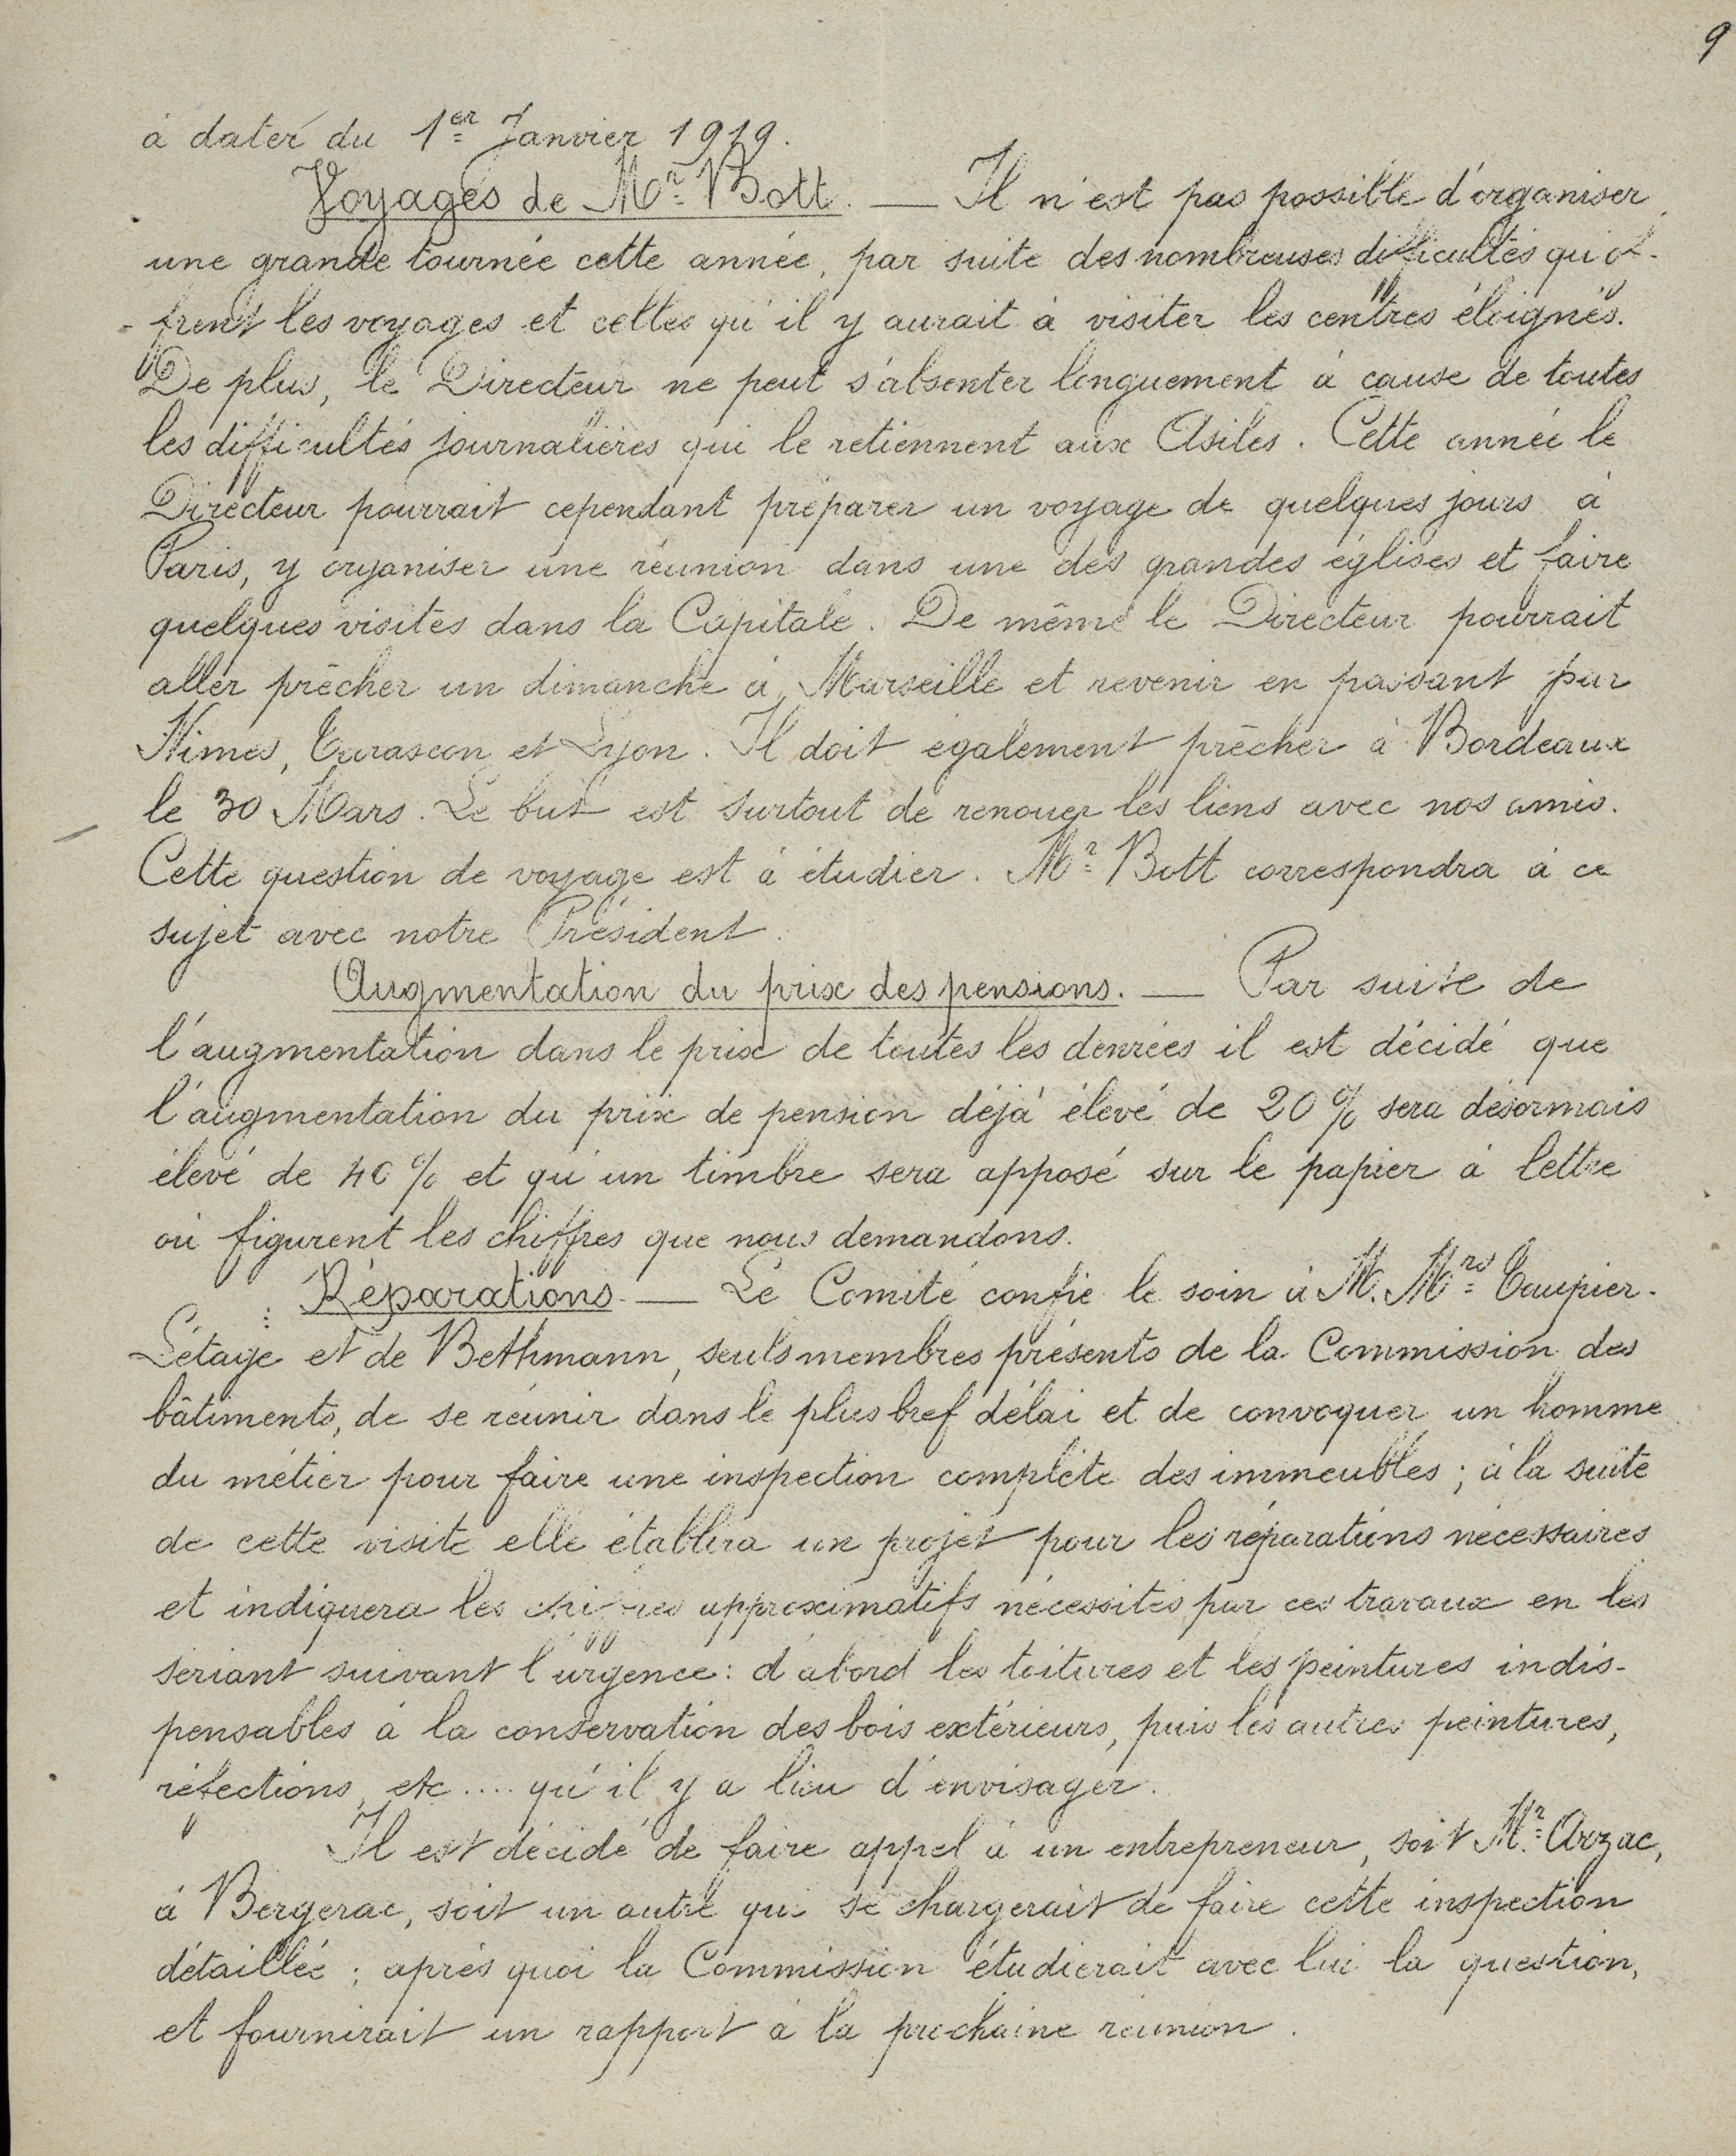 9
à dater du 1er Janvier 1919.
Voyages de Mr Bott. — Il n'est pas possible d'organiser
une grande tournée cette année, par suite des nombreuses difficultés qu'of-
-frent les voyages et celles qu'il y aurait à visiter les centres éloignés.
De plus, le Directeur ne peut s'absenter longuement à cause de toutes
les difficultés journalières qui le retiennent aux Asiles. Cette année le
Directeur pourrait cependant préparer un voyage de quelques jours à
Paris, y organiser une réunion dans une des grandes églises et faire
quelques visites dans la Capitale. De même le Directeur pourrait
aller prêcher un dimanche à Marseille et revenir en passant par
Nîmes, Tarascon et Lyon. Il doit également prêcher à Bordeaux
le 30 Mars. Le but est surtout de renouer les liens avec nos amis.
Cette question de voyage est à étudier. Mr Bott correspondra à ce
sujet avec notre Président.
Augmentation du prix des pensions. — Par suite de
l'augmentation dans le prix de toutes les denrées il est décidé que
l'augmentation du prix de pension déjà élevé de 20% sera désormais
élevé de 40% et qu'un timbre sera apposé sur le papier à lettre
où figurent les chiffres que nous demandons.
Réparations. — Le Comité confie le soin à M. Mrs Taupier-
Létage et de Bethmann, seuls membres présents de la Commission des
bâtiments, de se réunir dans le plus bref délai et de convoquer un homme
du métier pour faire une inspection complète des immeubles; à la suite
de cette visite elle établira un projet pour les réparations nécessaires
et indiquera les chiffres approximatifs nécessités par ces travaux en les
sériant suivant l'urgence: d'abord les toitures et les peintures indis-
pensables à la conservation des bois extérieurs, puis les autres peintures,
réfections, etc.... qu'il y a lieu d'envisager.
Il est décidé de faire appel à un entrepreneur, soit Mr. Arzac,
à Bergerac, soit un autre qui se chargerait de faire cette inspection
détaillée; après quoi la Commission étudierait avec lui la question,
et fournirait un rapport à la prochaine réunion.